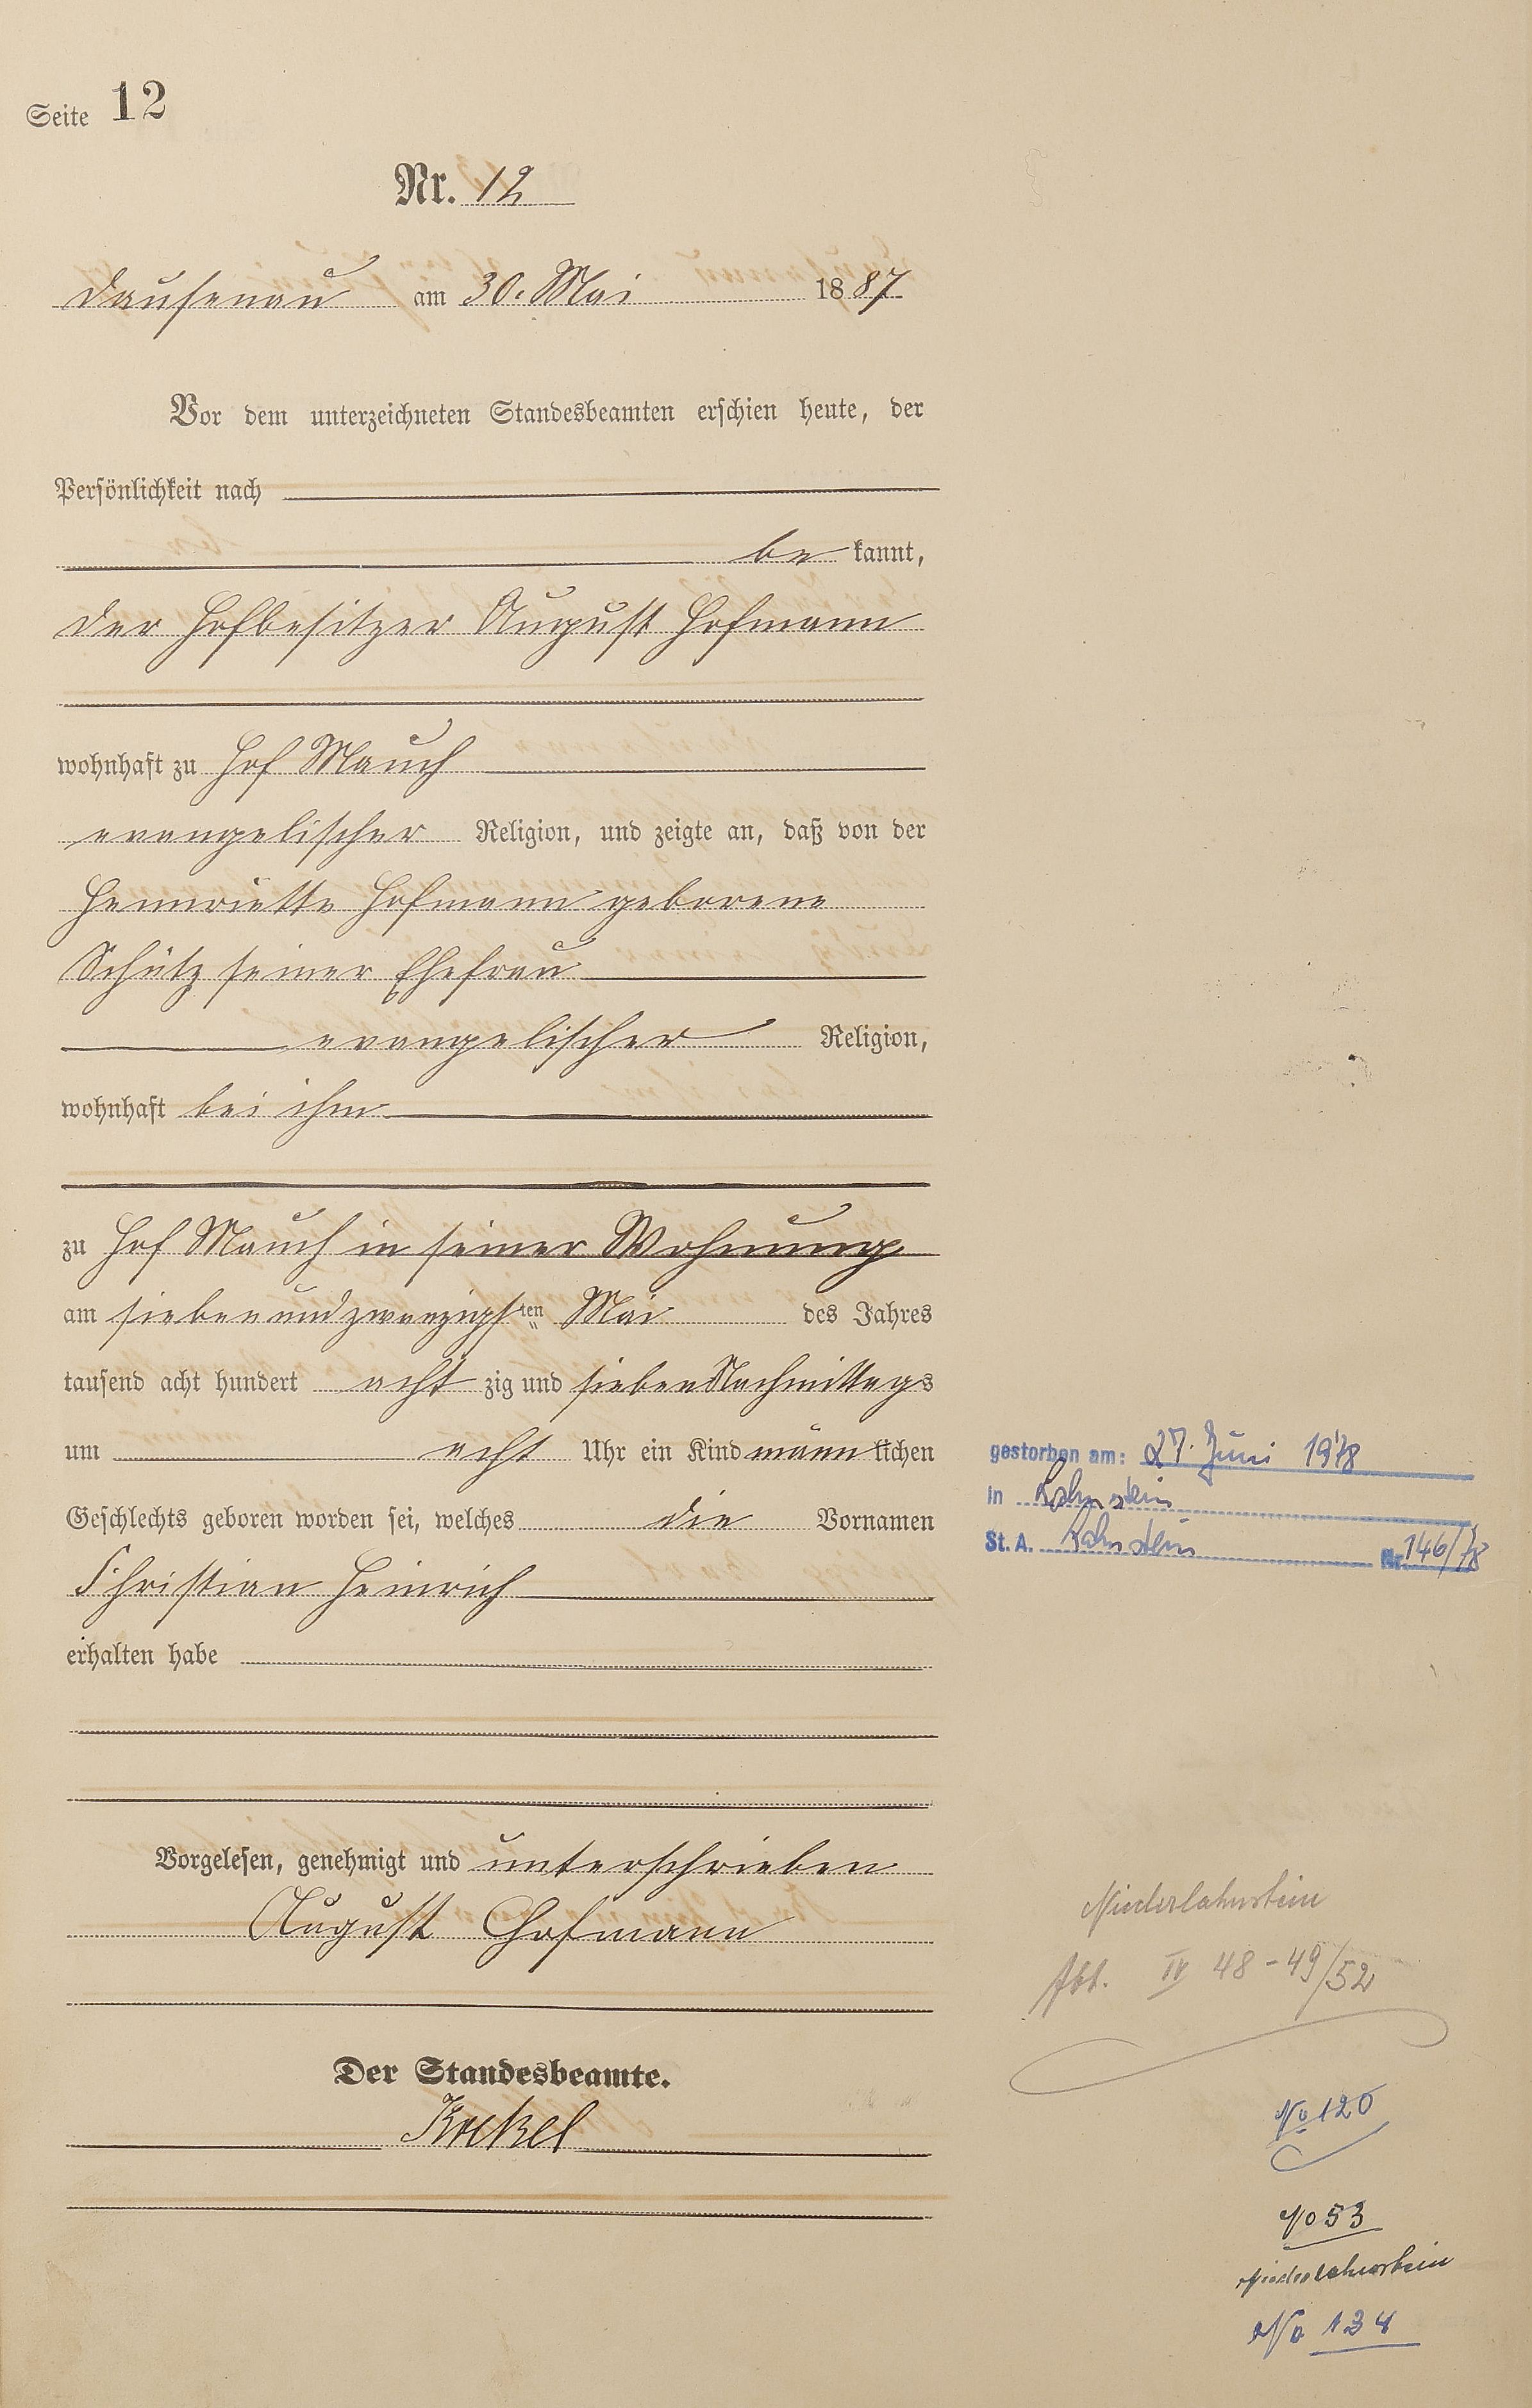 Seite 12
Nr. 12
Dausenau am 30. Mai 1887
Vor dem unterzeichneten Standesbeamten erschien heute, der
Persönlichkeit nach
be kannt,
der Hofbesitzer August Hofmann
wohnhaft zu Hof Mauch
evangelischer Religion, und zeigte an, daß von der
Hennriette Hofmann geborene
Schütz seiner Ehefrau
evangelischer Religion,
wohnhaft bei ihm
zu Hof Mauch in seiner Wohnung
am siebenundzwanzigsten Mai des Jahres
tausend acht hundert acht zig und sieben Nachmittags
um acht Uhr ein Kind männlichen
Geschlechts geboren worden sei, welches die Vornamen
Christian Heinrich
erhalten habe
Vorgelesen, genehmigt und unterschrieben
August Hofmann
Der Standesbeamte.
gestorben am: 27. Juni 1978
in Lahnstein
St. A. Lahnstein Nr. 146/78
Niederlahnstein
Abt. IV 48-49/52
No 120
No 53
Niederlahnstein
No 134